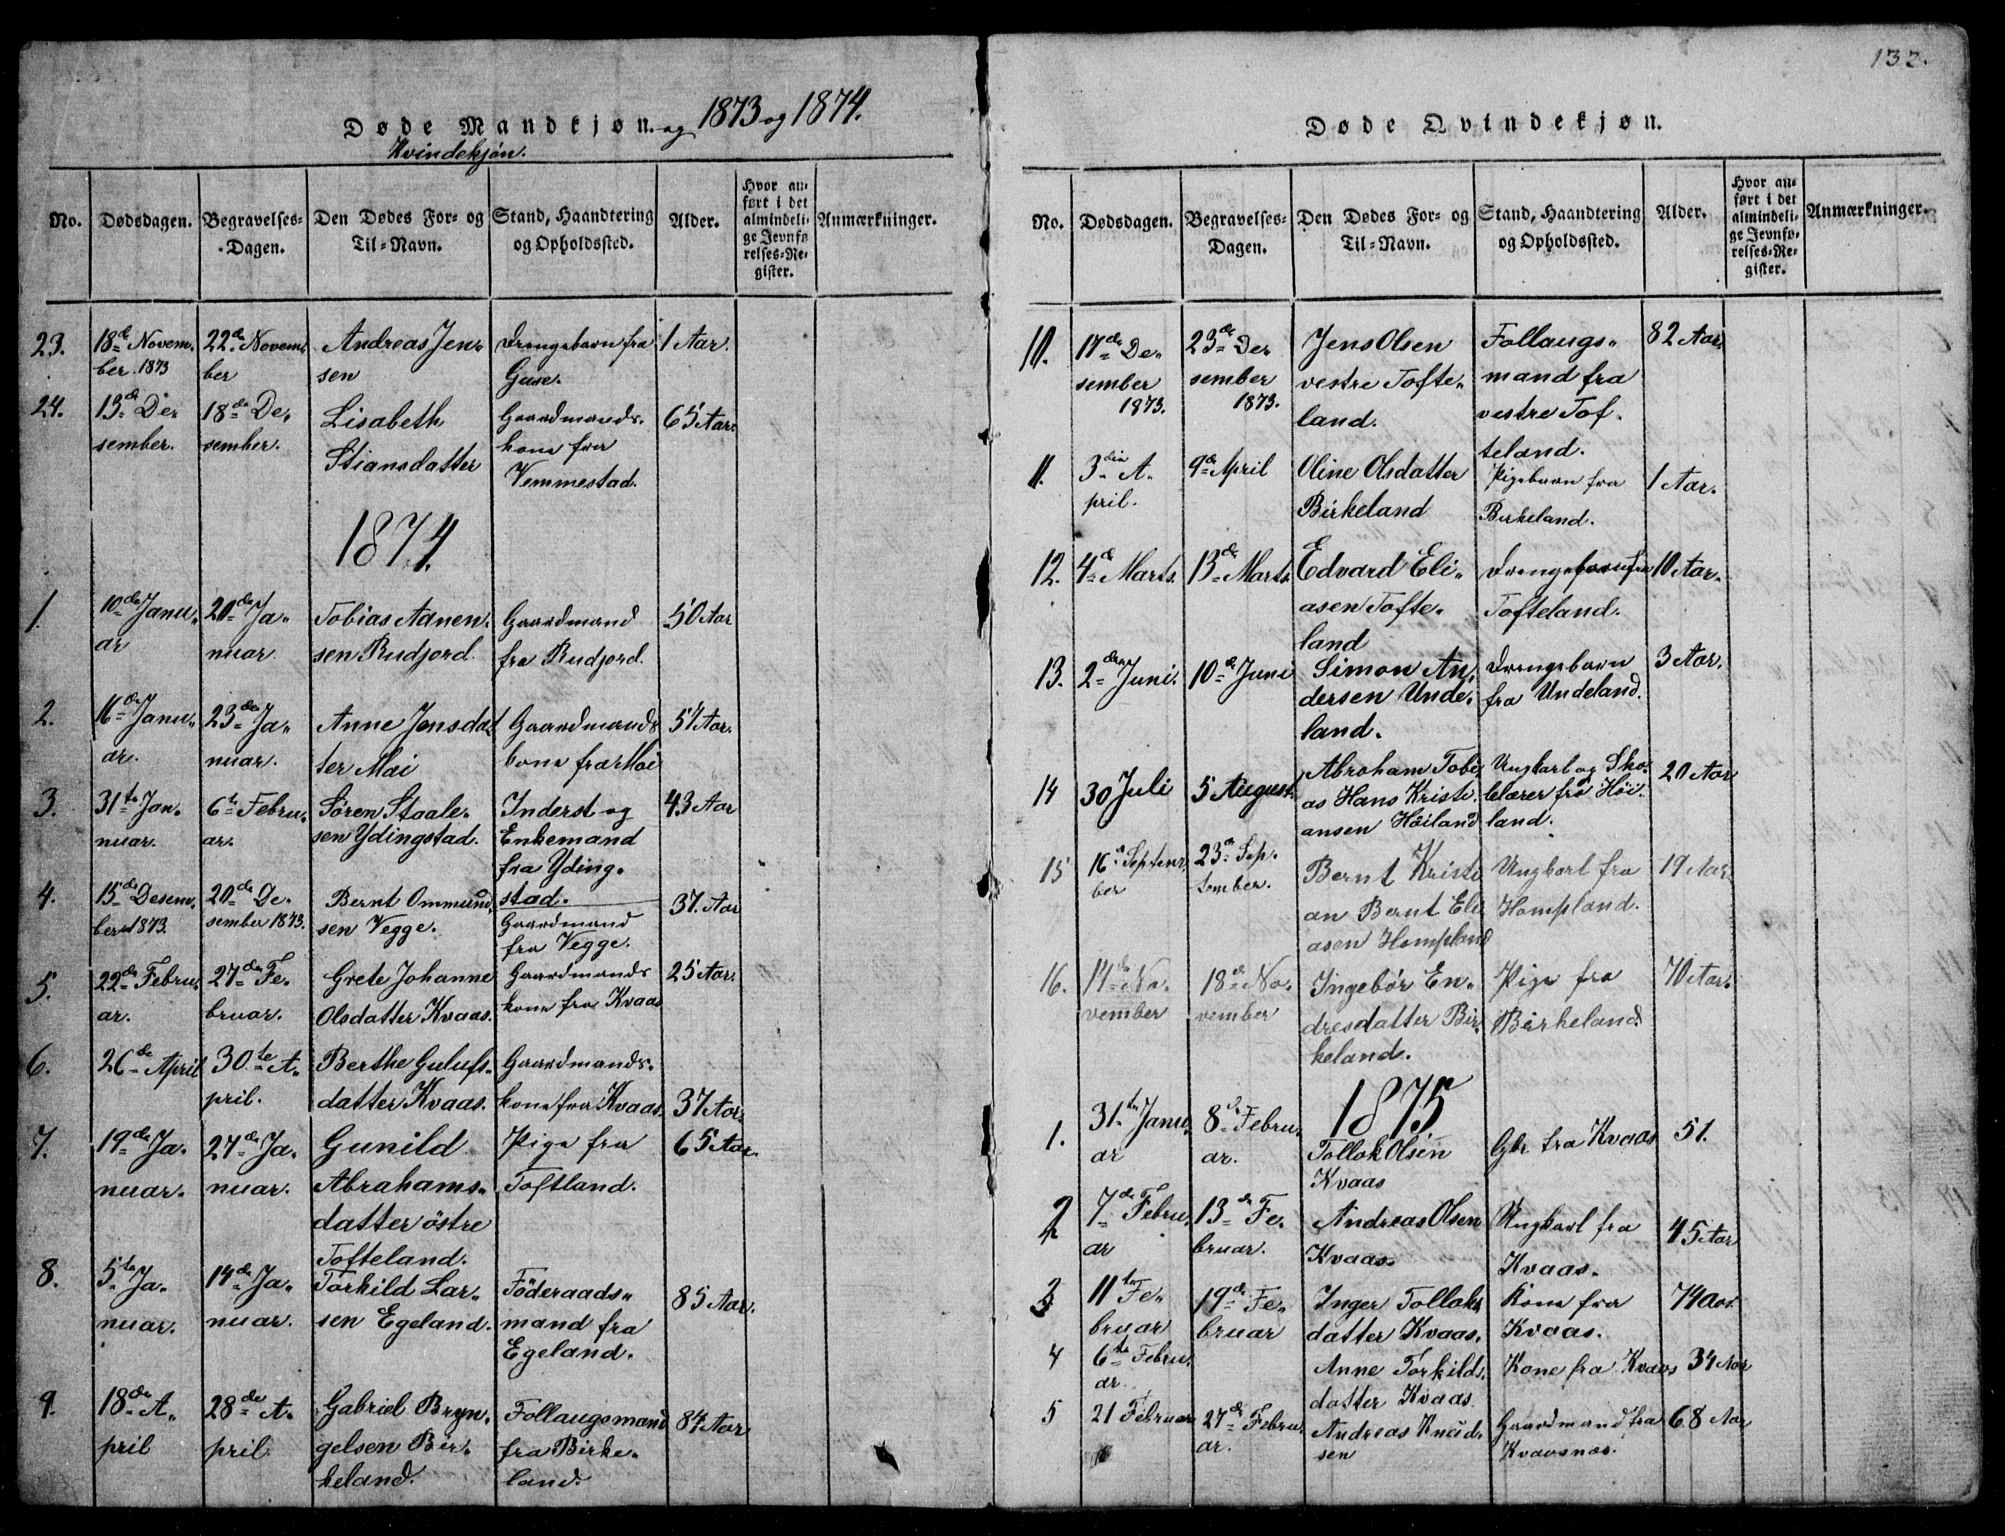 133.
Døde Mandkjøn. og 1873 og 1874.
Kvindekjøn.
No.
Dødsdagen.
Begravelses-
Dagen.
Den Dødes For- og
Til-Navn.
Stand, Haandtering
og Opholdssted.
Alder.
Hvor an-
ført i det
almindeli-
ge Jevnfø-
relses-Re-
gister.
Anmærkninger.
23.
18de Novem-
ber. 1873
22de Novem-
ber
Andreas Jen-
sen
Drengebarn fra
1 Aar.
24.
13de De-
sember.
18de De-
sember.
Lisabeth
Stiansdatter
Gaardmands-
kone fra
Vemmestad.
65 Aar.
1874.
1.
10de Janu-
ar
20de Ja-
nuar.
Tobias Adnen-
sen Rudjord.
Gaardmand
fra Rudjord.
50 Aar
2.
16de Janu-
ar.
23de Ja-
nuar.
Anne Jensdat
ter Moi
Gaardmands
kone fra Moi
57 Aar.
3.
31te Jan-
nuar.
6te Febru-
ar.
Sören Staale-
sen Ydingstad.
Inderst og
Enkemand
fra Yding-
stad.
43 Aar
4.
15de Desem-
ber 1873.
20de De-
sember 1873.
Bernt Ommund-
sen Vegge.
Gaardmand
fra Vegge.
37. Aar
5.
22de Febru-
ar.
27de Fe-
bruar.
Grete Johanne
Olsdatter Kvaas.
Gaardmands
kone fra Kvaas
25 Aar.
6.
26de April
30te A-
pril.
Berthe Gulufs-
datter Kvaas.
Gaardmands-
kone fra Kvaas.
37 Aar.
7.
19de Ja-
nuar.
27de Ja-
nuar.
Gunild
Abrahams-
datter östre
Tofteland.
Pige fra
Toftland.
65 Aar.
8.
5te Ja-
nuar.
14de Ja-
nuar.
Torkild Lar-
sen Egeland.
Föderaads-
mand fra
Egeland.
85 Aar.
9.
18de A-
pril
28de A-
pril
Gabriel Bryn-
gelsen Bir-
keland.
Follaugsmand
fra Birke-
land.
84 Aar
Døde Qvindekjøn.
No.
Dødsdagen.
Begravelses-
Dagen.
Den Dødes For- og
Til-Navn.
Stand, Haandtering
og Opholdssted.
Alder.
Hvor an-
ført i det
almindeli-
ge Jevnfø-
relses-Re-
gister.
Anmærkninger.
10.
17de De-
sember
1873.
23de De-
sember
1873.
Jens Olsen
vestre Tofte-
land.
Follaugs-
mand fra
vestre Tof-
teland.
82 Aar.
11.
3die A-
pril.
9de April
Oline Olsdatter
Birkeland
Pigebarn fra
Birkeland.
1 Aar.
12.
4de Marts.
13de Marts.
Edvard Eli-
asen Tofte-
land
Drengebarn fra
Tofteland.
10 Aar.
13.
2den Juni.
10de Juni
Simon An-
dersen Unde-
land.
Drengebarn
fra Undeland.
3 Aar.
14
30 Juli
5 August.
Abraham Tobi-
as Hans Kristi-
ansen Höiland
Ungkarl og Sko-
lelærer fra Höi-
land.
20 Aar
15
16de Septem-
ber
23de Sep-
tember.
Bernt Kristi
an Bernt Eli
asen Hompland
Ungkarl fra
Hompland.
19 Aar.
16.
14de No-
vember
18de No-
vember
Ingebör En-
dresdatter Bir-
keland.
Pige fra
Birkeland.
70 Aar.
1875
1.
31te Janu-
ar
8de Febru-
ar.
Tollok Olsen
Kvaas
Gbr. fra Kvaas
51.
2
7de Febru-
ar
13de Fe-
bruar.
Andreas Olsen
Kvaas.
Ungkarl fra
Kvaas.
45 Aar
3
11te Fe-
bruar
19de Fe-
bruar
Inger Tolloks
datter Kvaas.
Kone fra
Kvaas.
74 Aar.
4
6te Febru-
ar.
Anne Torkilds-
datter Kvaas
Kone fra Kvaas
34 Aar
5
21 Februar
27de Febru-
ar.
Andreas Knud-
sen
Gaardmand fra
Kvaasnæs.
68 Aar